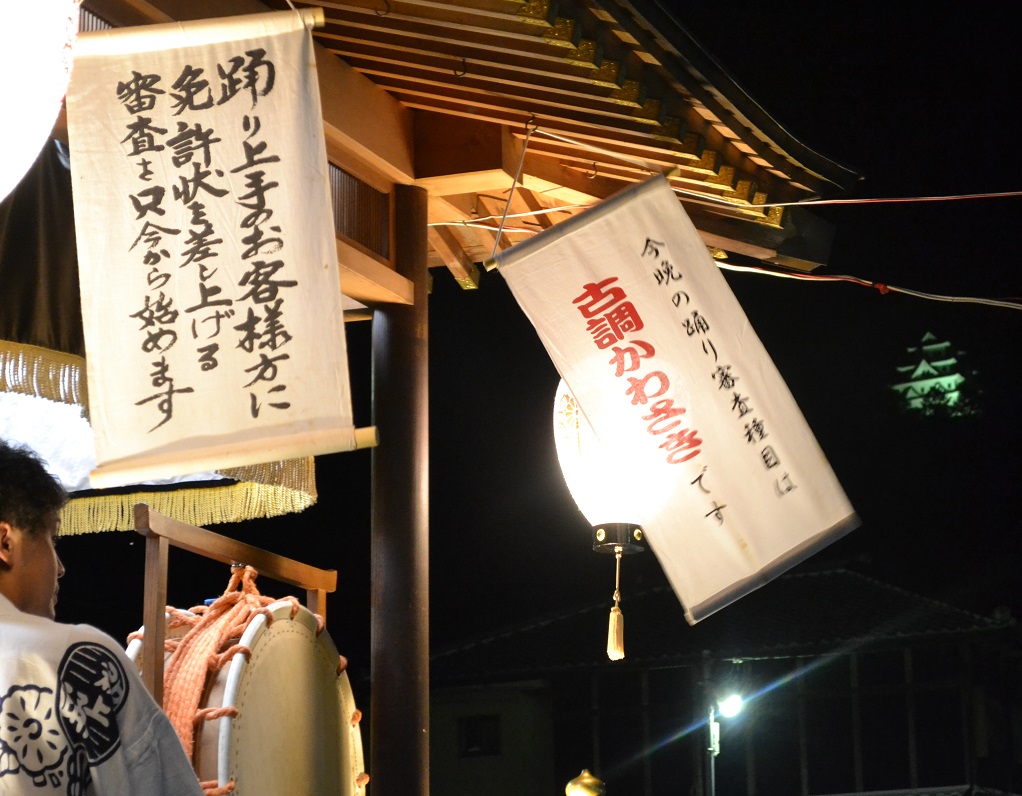 踊り上手のお客様方に
免許状を差し上げる
審査を只今から始めます
今晩の踊り審査種目は
古調かわさきです